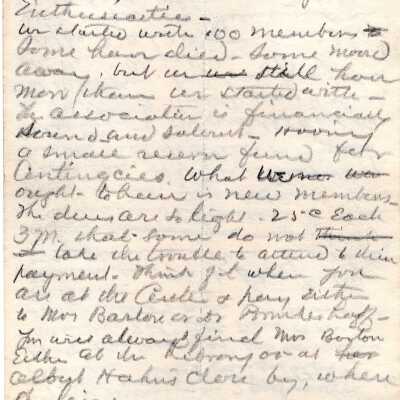 Enthusiastic -
we started with 100 members to
Some have died - Some moved
away, but we still have
more than we started with -
The association is financially
sound and solvent - Having
a small reserve fund for
Contingcies. What we
ought to have is new members -
The dues are so light. 25c Each
3 M. that some do not
take the trouble to attend to their
payment - Think of it when you
are at the Center & pay Either
to Mrs Barton or Dr
You will always find Mrs Barton
Either at the Library or at
Hahns close by, where